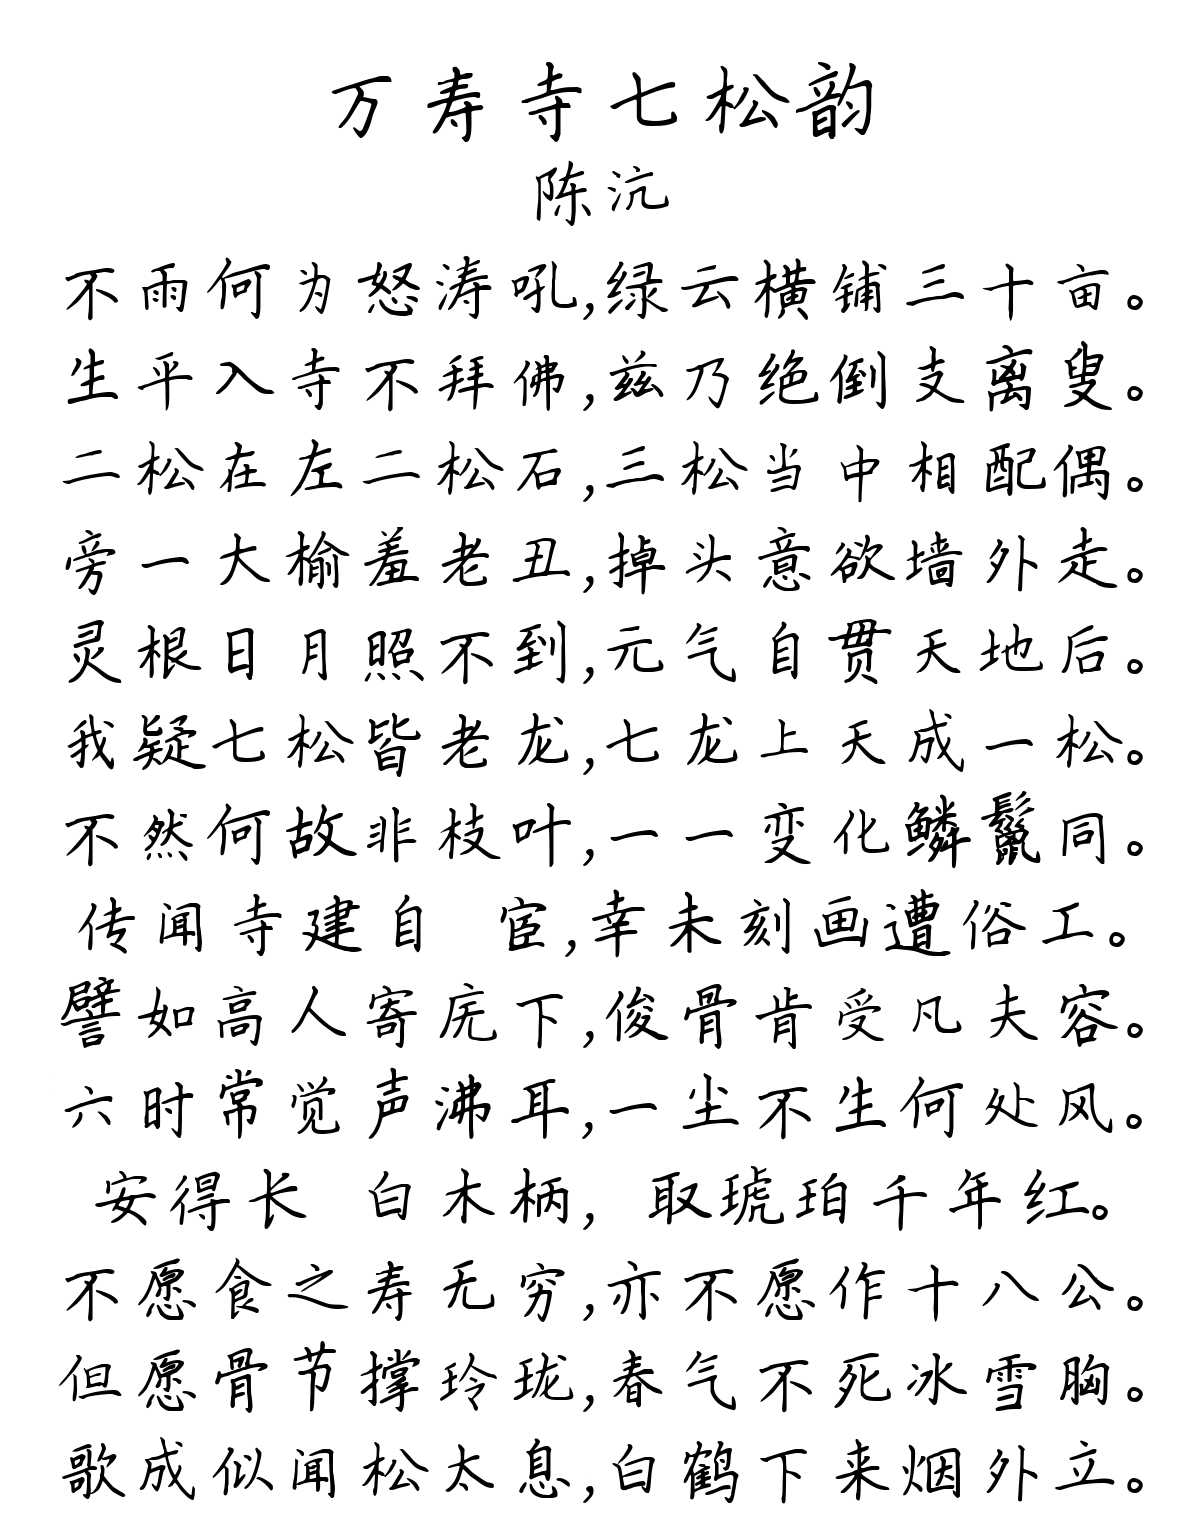 万寿寺七松韵
陈沆
不雨何为怒涛吼,绿云横铺三十亩。
生平入寺不拜佛,兹乃绝倒支离叟。
二松在左二松石,三松当中相配偶。
旁一大榆羞老丑,掉头意欲墙外走。
灵根日月照不到,元气自贯天地后。
我疑七松皆老龙,七龙上天成一松。
不然何故非枝叶,一一变化鳞鬣同。
传闻寺建自 宦,幸未刻画遭俗工。
譬如高人寄庑下,俊骨肯受凡夫容。
六时常觉声沸耳,一尘不生何处风。
安得长 白木柄, 取琥珀千年红。
不愿食之寿无穷,亦不愿作十八公。
但愿骨节撑玲珑,春气不死冰雪胸。
歌成似闻松太息,白鹤下来烟外立。